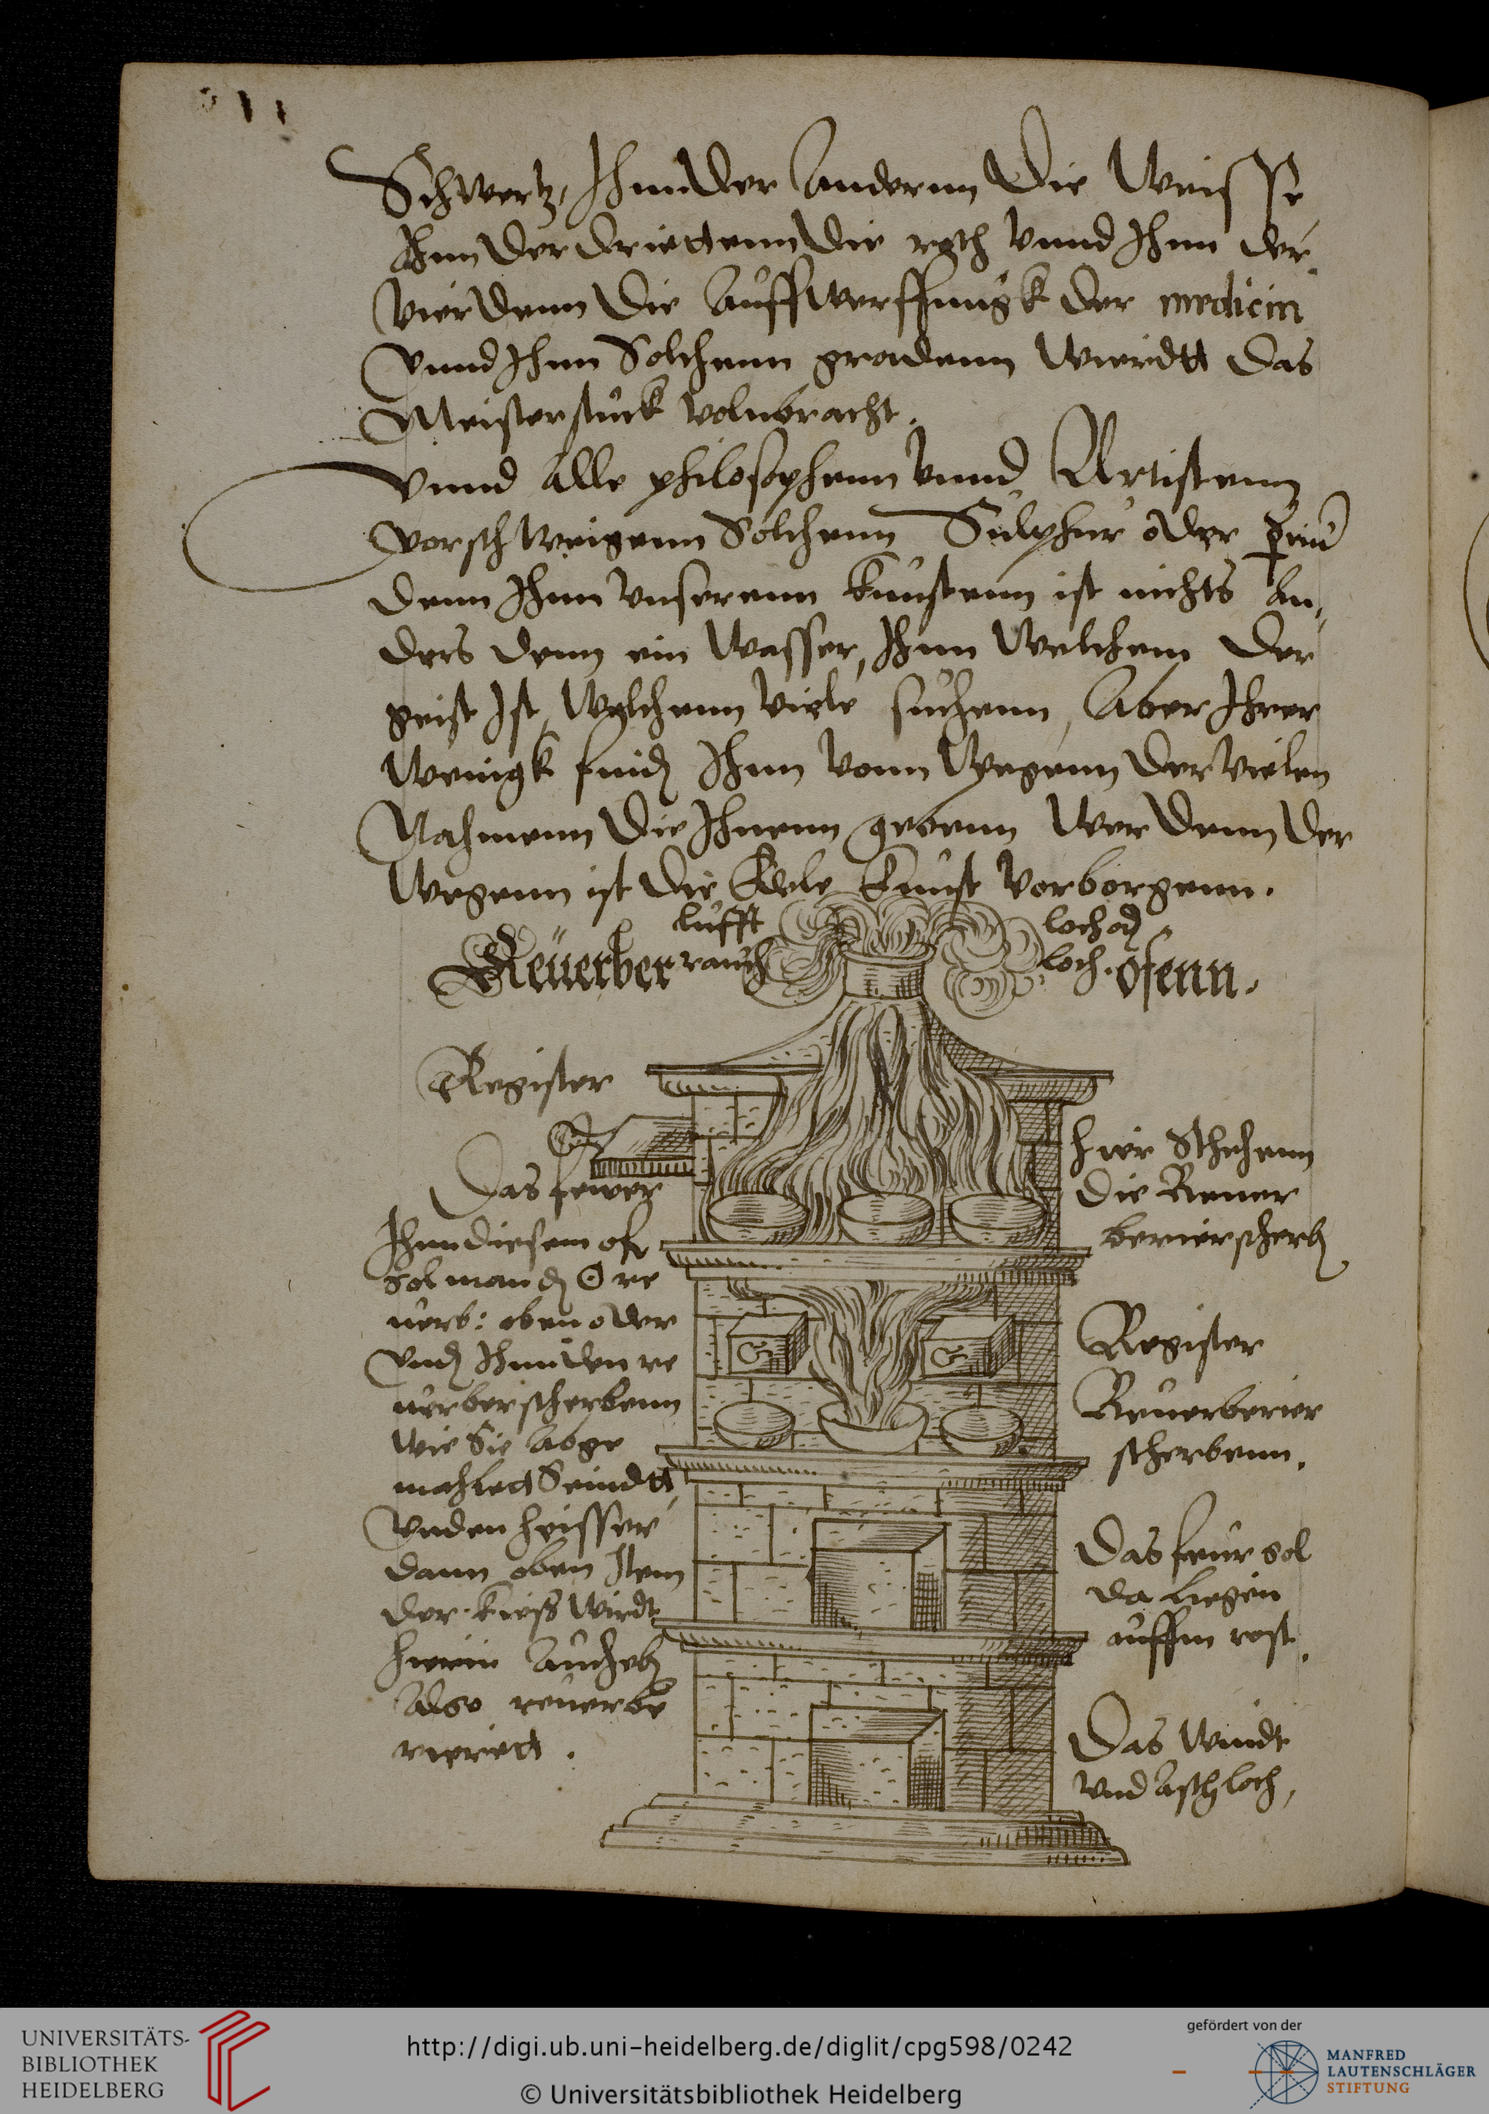 Schwertz, Ihnn der Anderenn die Weisse
Ihnn der driettenn die roth vnnd Ihnn der
Vierdenn die Auffwerffungk der medicin
vnnd Ihnn Solchenn gradenn Wierdtt das
Meisterstuck volnbracht.
vnnd Alle philosophenn vnnd Artistenn
vorschweigenn Solchenn Sulphur oder
denn Ihnn vnserenn kunstenn ist nichts An,
ders denn ein Wasser, Ihnn Welchem der
geist Ist, Welchenn viele suchenn, Aber Ihrer
Wenigk Ihnn vonn Wegenn der vielen
Nahmenn die Ihnenn gebenn Werdenn der
Wegenn ist die Edele Kunst vorborgenn.
lufft loch od
Reuerber rauch loch. ofenn.
Register
Das fewer
Ihnn diesem ofe
sol man d ☉ re
uerb: oben oder
vnd Ihnn den re
uerber scherbenn
wie Sie Abge
mahlett Seindtt
vnden heisser
dann oben Item
der kiess wirdt
hierin
Also reuerbe
rierett.
hier Stehenn
die Reuer
berierscherb
Register
Reuerberier
scherbenn.
Das feur sol
da liegen
auffm rost.
Das Windt
vnd Aschloch,
UNIVERSITÄTS-
BIBLIOTHEK
HEIDELBERG
http://digi.ub.uni-heidelberg.de/diglit/cpg598/0242
© Universitätsbibliothek Heidelberg
gefördert von der
MANFRED
LAUTENSCHLÄGER
STIFTUNG